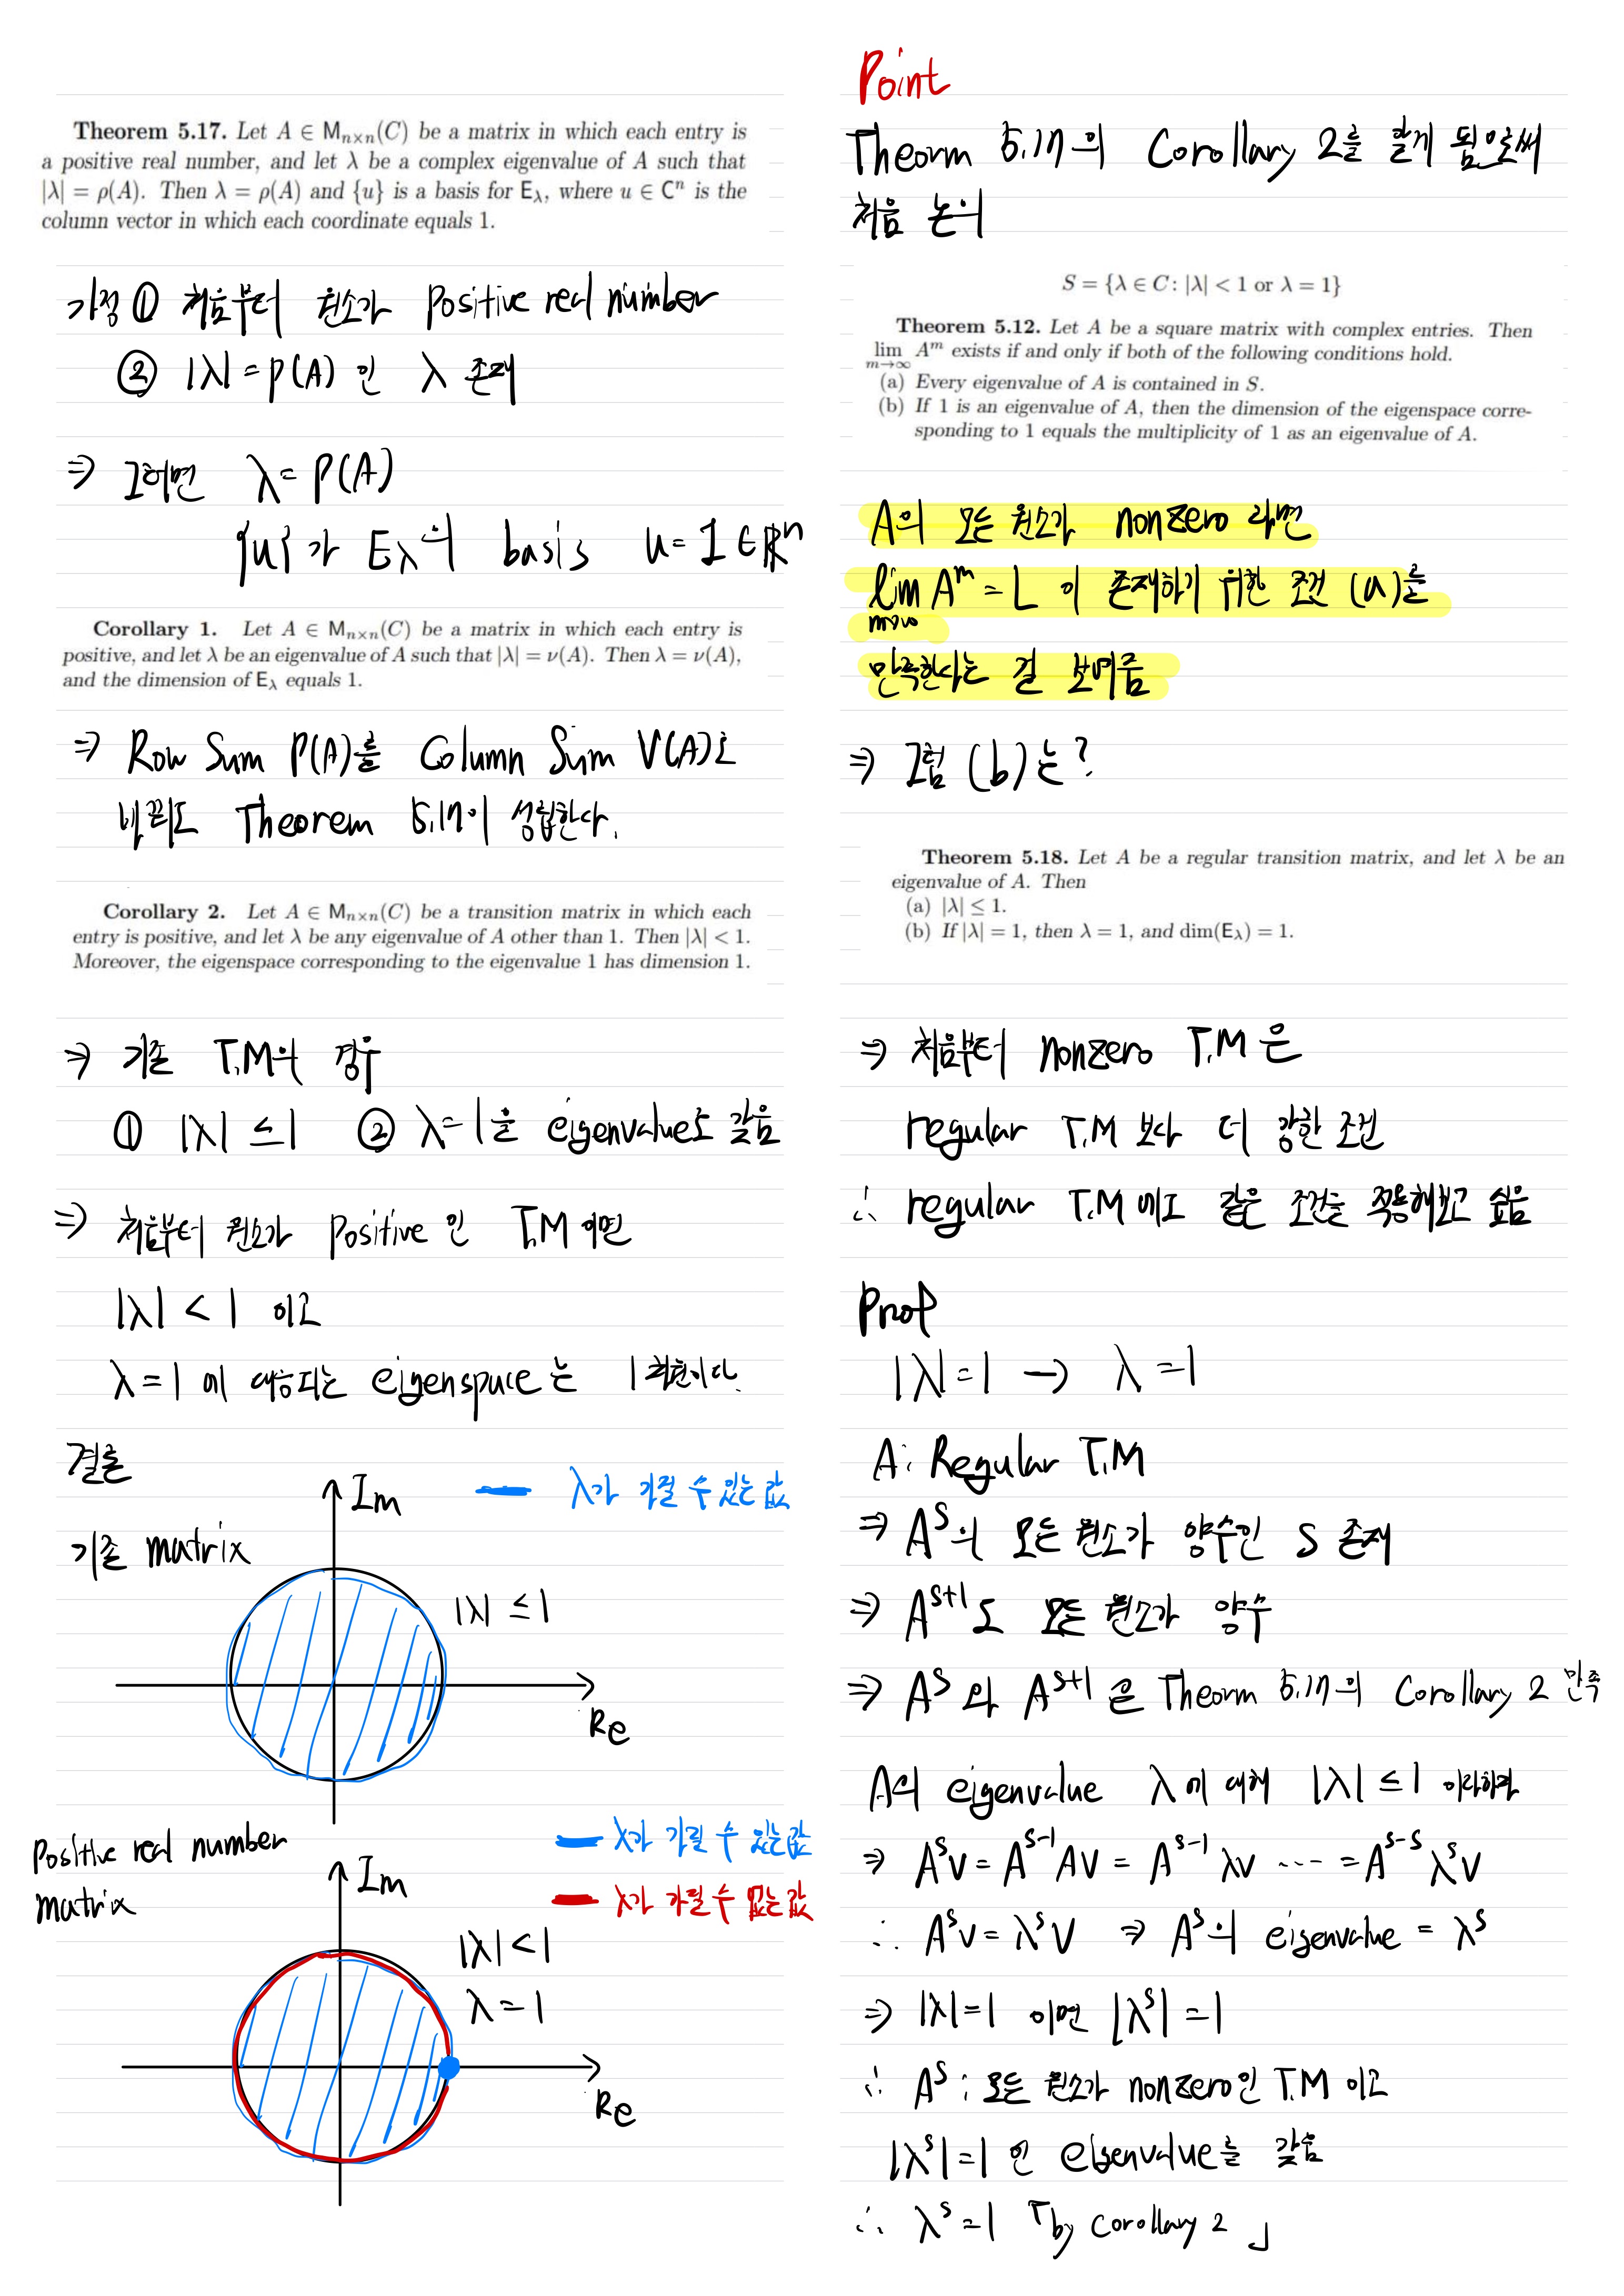 Theorem 5.17. Let A ∈ M_{n×n}(C) be a matrix in which each entry is
a positive real number, and let λ be a complex eigenvalue of A such that
|λ| = ρ(A). Then λ = ρ(A) and {u} is a basis for E_λ, where u ∈ C^n is the
column vector in which each coordinate equals 1.
가정 ① 처음부터 원소가 positive real number
② |λ| = ρ(A) 인 λ 존재
⇒ 그러면 λ = ρ(A)
{u} 가 E_λ의 basis u = 1 ∈ ℝ^n
Corollary 1. Let A ∈ M_{n×n}(C) be a matrix in which each entry is
positive, and let λ be an eigenvalue of A such that |λ| = ν(A). Then λ = ν(A),
and the dimension of E_λ equals 1.
⇒ Row Sum ρ(A)를 Column Sum ν(A)로
바꿔도 Theorem 5.17이 성립한다.
Corollary 2. Let A ∈ M_{n×n}(C) be a transition matrix in which each
entry is positive, and let λ be any eigenvalue of A other than 1. Then |λ| < 1.
Moreover, the eigenspace corresponding to the eigenvalue 1 has dimension 1.
⇒ 기존 T.M의 경우
① |λ| ≤ 1 ② λ = 1을 eigenvalue로 갖음
⇒ 처음부터 원소가 positive 인 T.M 이면
|λ| < 1 이고
λ = 1 에 대응되는 eigenspace는 1차원이다.
결론
Im
λ가 가질 수 있는 값
기존 matrix
|λ| ≤ 1
Re
Positive real number
matrix
Im
λ가 가질 수 있는 값
λ가 가질 수 없는 값
|λ| < 1
λ = 1
Re
Point
Theorm 5.17의 Corollary 2를 알게 됨으로써
처음 논의
S = {λ ∈ C: |λ| < 1 or λ = 1}
Theorem 5.12. Let A be a square matrix with complex entries. Then
lim_{m→∞} A^m exists if and only if both of the following conditions hold.
(a) Every eigenvalue of A is contained in S.
(b) If 1 is an eigenvalue of A, then the dimension of the eigenspace corre-
sponding to 1 equals the multiplicity of 1 as an eigenvalue of A.
A의 모든 원소가 nonzero 라면
lim_{m→∞} A^m = L 이 존재하기 위한 조건 (a)를
만족한다는 걸 보여줌
⇒ 그럼 (b)는?
Theorem 5.18. Let A be a regular transition matrix, and let λ be an
eigenvalue of A. Then
(a) |λ| ≤ 1.
(b) If |λ| = 1, then λ = 1, and dim(E_λ) = 1.
⇒ 처음부터 nonzero T.M 은
regular T.M 보다 더 강한 조건
∴ regular T.M 에도 같은 조건을 적용해보고 싶음
Prof
|λ| = 1 → λ = 1
A: Regular T.M
⇒ A^s의 모든 원소가 양수인 s 존재
⇒ A^{s+1}도 모든 원소가 양수
⇒ A^s 와 A^{s+1} 은 Theorm 5.17의 Corollary 2 만족
A의 eigenvalue λ에 대해 |λ| ≤ 1 이라하자
⇒ A^s v = A^{s-1} A v = A^{s-1} λv ... = A^{s-s} λ^s v
∴ A^s v = λ^s v ⇒ A^s의 eigenvalue = λ^s
⇒ |λ| = 1 이면 |λ^s| = 1
∴ A^s : 모든 원소가 nonzero인 T.M 이고
|λ^s| = 1 인 eigenvalue를 갖음
∴ λ^s = 1 「by Corollary 2」